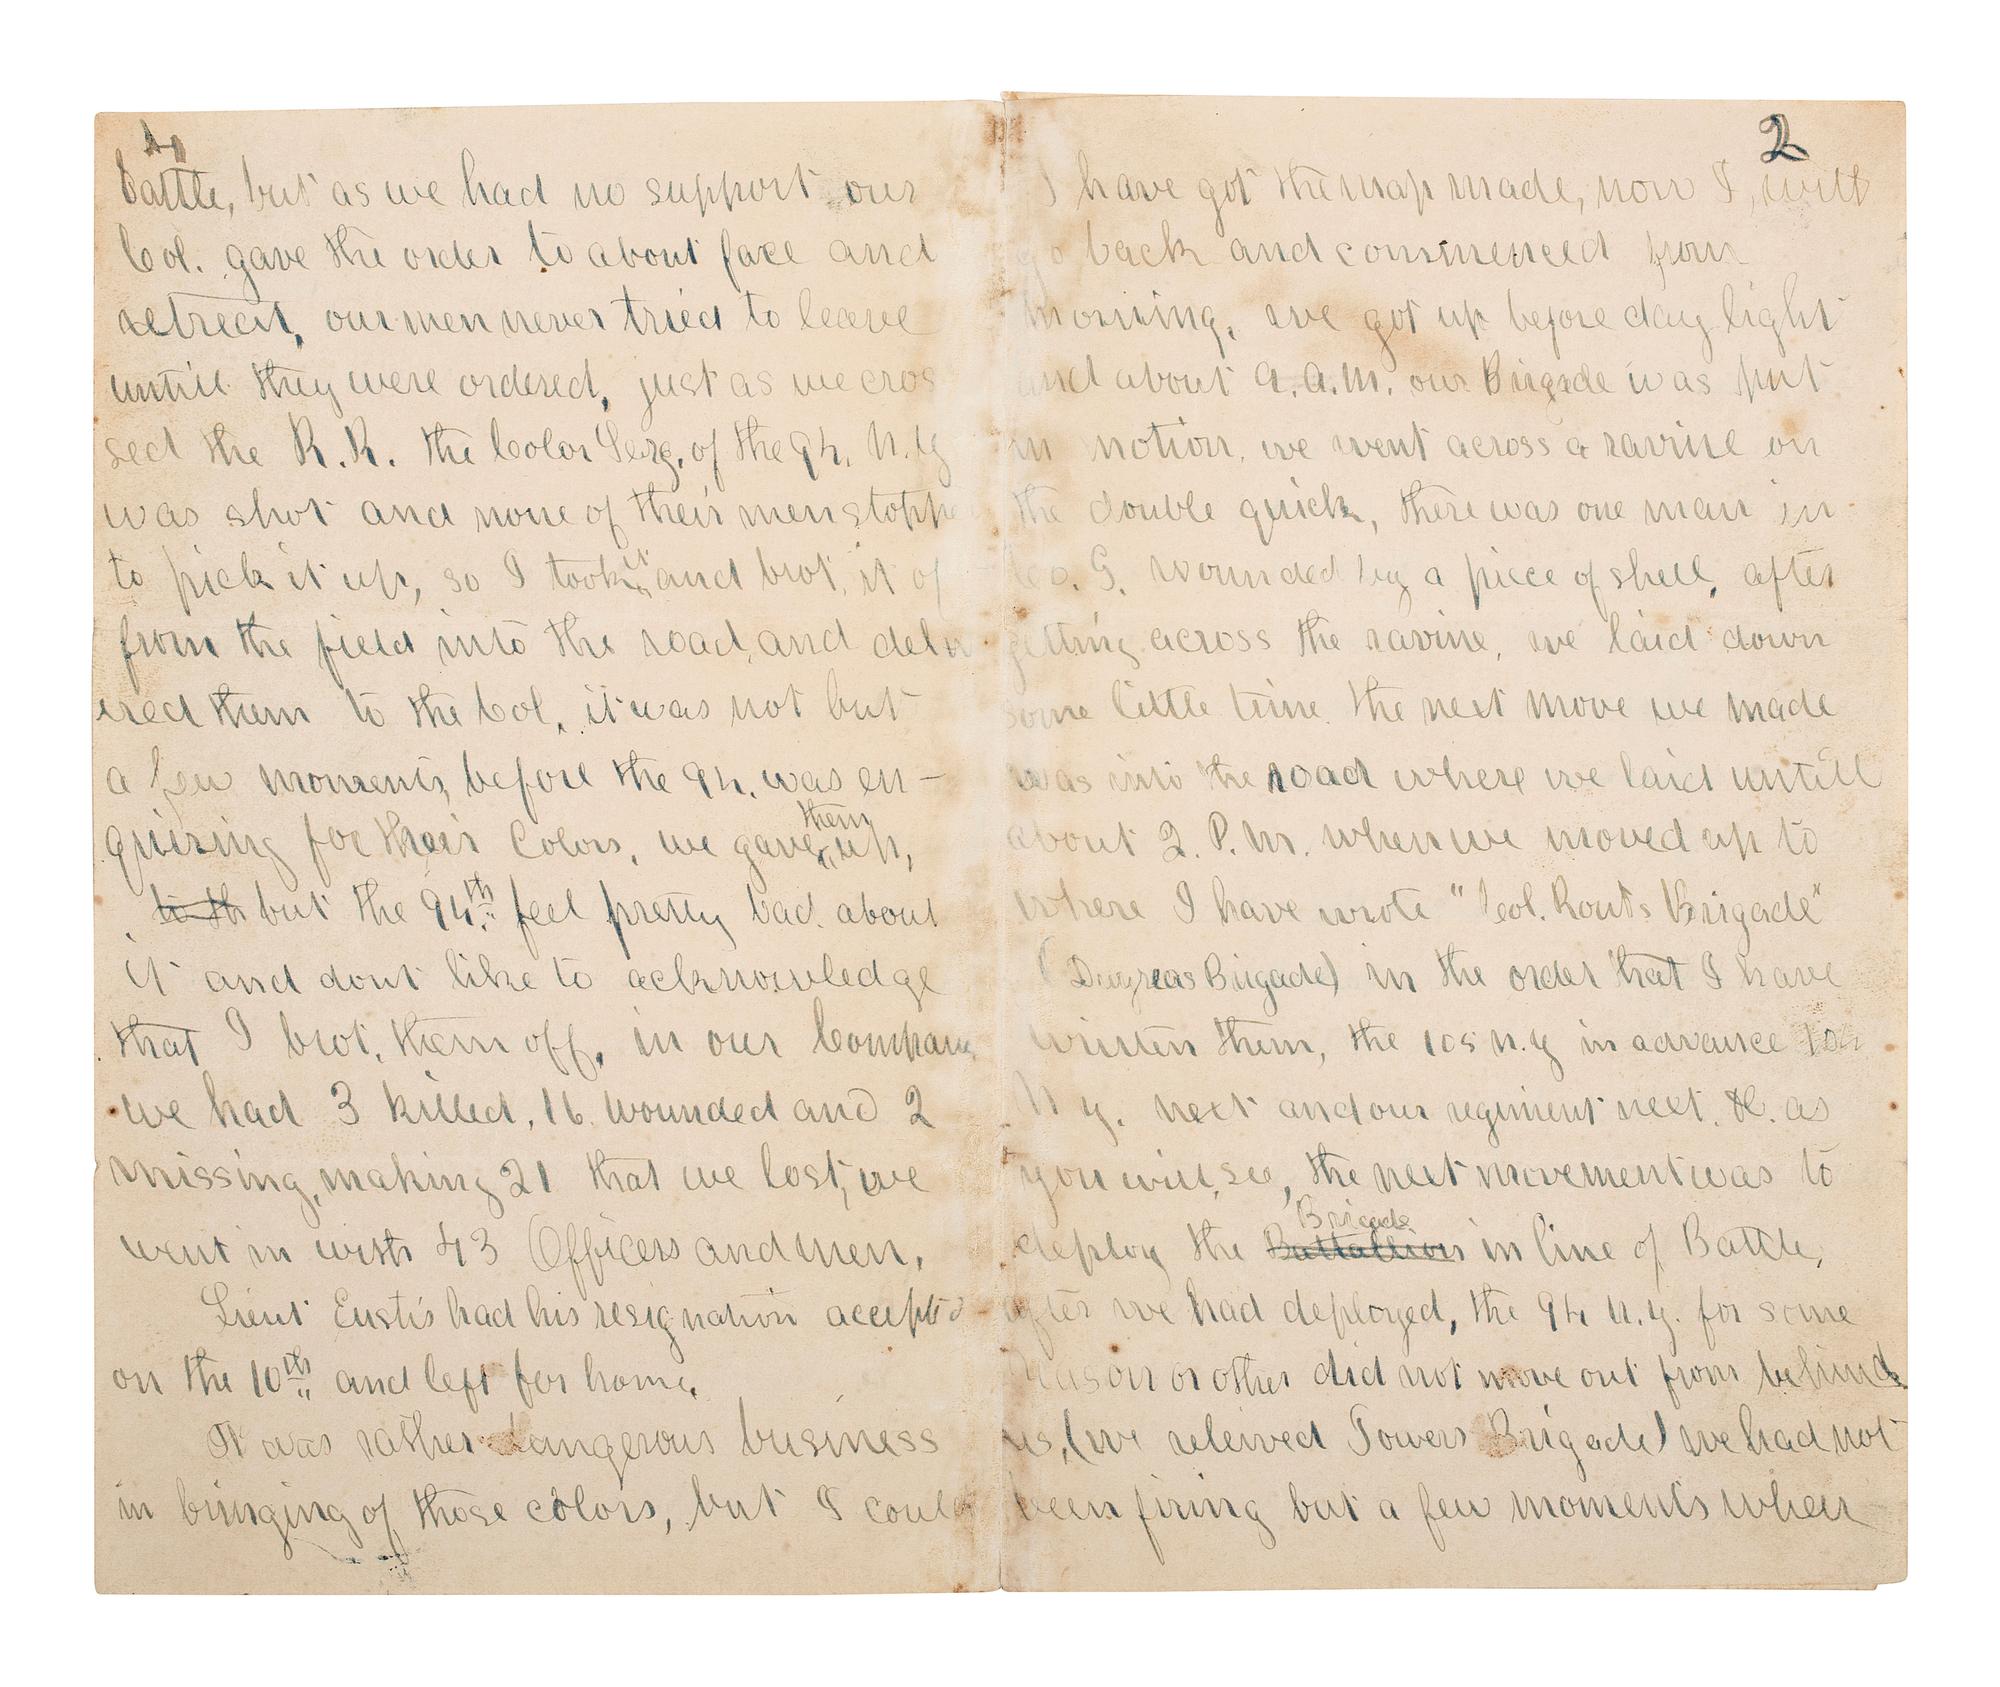 4
battle, but as we had no support our
Col. gave the order to about face and
retreat, our men never tried to leave
untill they were ordered, just as we cros
sed the R.R. the Color Serg, of the 94, N.Y
was shot and none of their men stopp
to pick it up, so I took it and brot, it of
from the field into the road, and deliv
ered them to the Col, it was not but
a few moments before the 94. was en-
quiring for their Colors, we gave them up,
to th but the 94th feel pretty bad about
it and dont like to acknowledge
that I brot, them off, in our Company
we had 3 killed, 16 wounded and 2
missing, making 21 that we lost, we
went in with 43 Officers and men,
Lieut Eustis had his resignation accept
on the 10th and left for home,
It was rather dangerous business
in bringing of those colors, but I could
2
I have got the map made, now I, will
go back and commenced from
morning, we got up before day light
and about 9. A.M. our Brigade was put
in motion, we went across a ravine on
the double quick, there was one man in
Co. G. wounded by a piece of shell, after
getting across the ravine, we laid down
some little time the next move we made
was into the road where we laid untill
about 2. P.M. when we moved up to
where I have wrote "Col. Routs Brigade"
(Duyreas Brigade) in the order that I have
written them, the 105 N.Y in advance 104
N Y. next and our regiment next. &c. as
you will, see, the next movement was to
deploy the Battallions Brigade in line of Battle,
after we had deployed, the 94 N.Y. for some
reason or other did not move out from behind
us, (we releived Towers Brigade) we had not
been firing but a few moments when